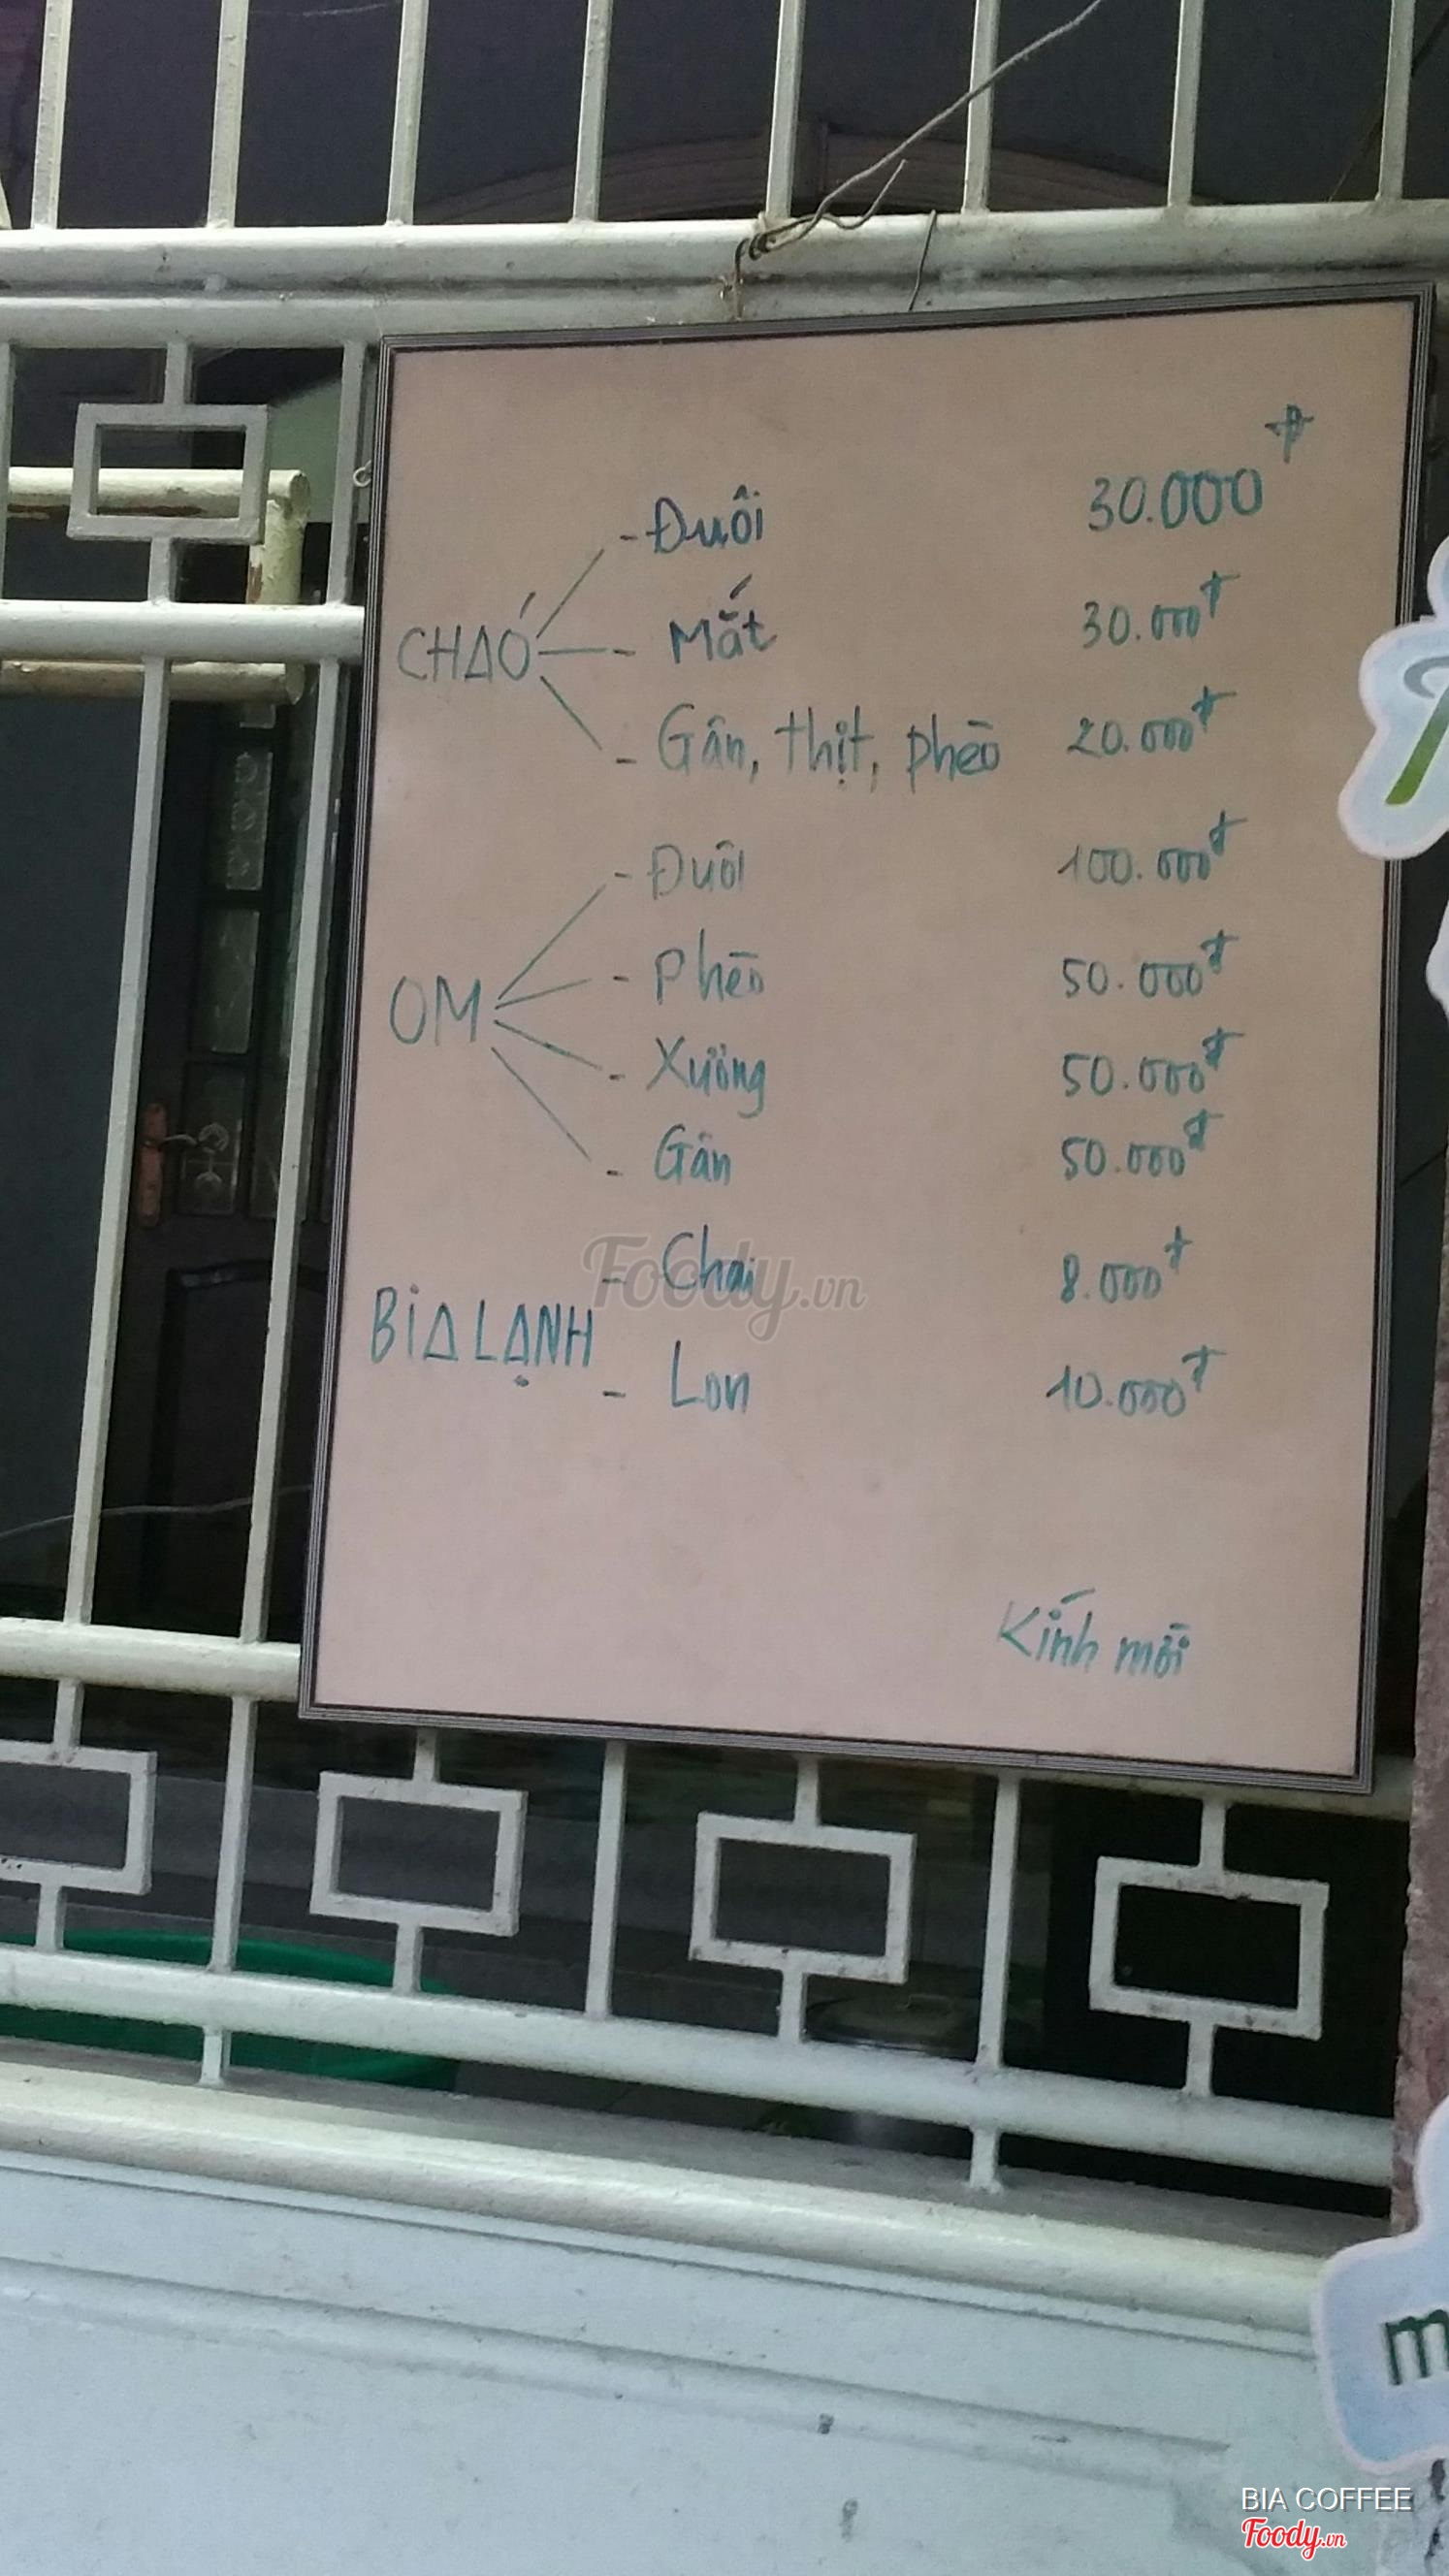 - Đuôi 30.000đ
CHÁO - Mắt 30.000đ
- Gân, thịt, phèo 20.000đ
- Đuôi 100.000đ
- Phèo 50.000đ
OM
- Xương 50.000đ
- Gân 50.000đ
- Chai 8.000đ
Foody.vn
BIA LẠNH
- Lon 10.000đ
Kính mời
m
BIA COFFEE
Foody.vn